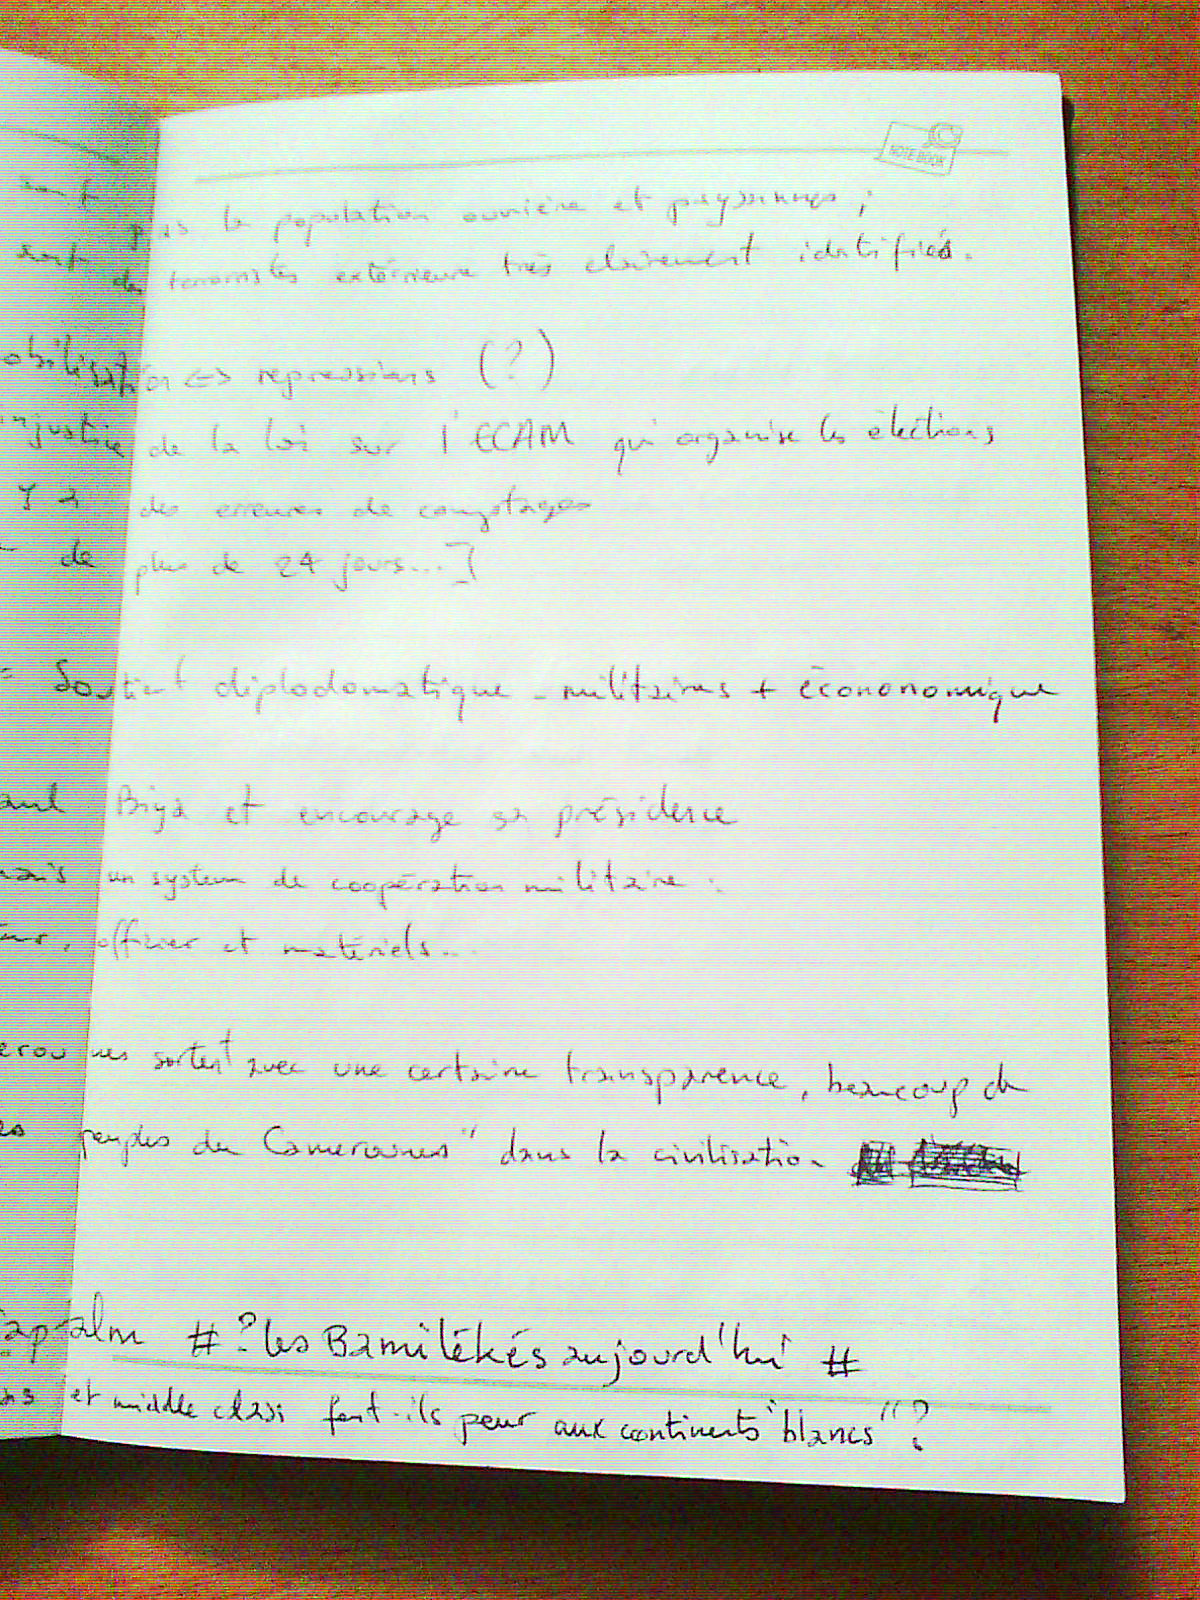 NOTEBOOK
pas la population ouvrière et paysannes ;
des terroristes extérieure très clairement identifiés.
obilisation <-> repressions (?)
injustice de la loi sur l'ECAM qui organise les élections
Y a des erreures de comptages
de plus de 24 jours...]
= Soutient diplodomatique - militaires + écononomique
aul Biya et encourage sa présidence
mais un system de coopération militaire :
offizier et matériels...
sortent avec une certaine transparence, beaucoup de
peuples du Camerounes" dans la civilisation
# ? les Bamilékés aujourd'hui #
et middle class font-ils peur aux continents "blancs" ?